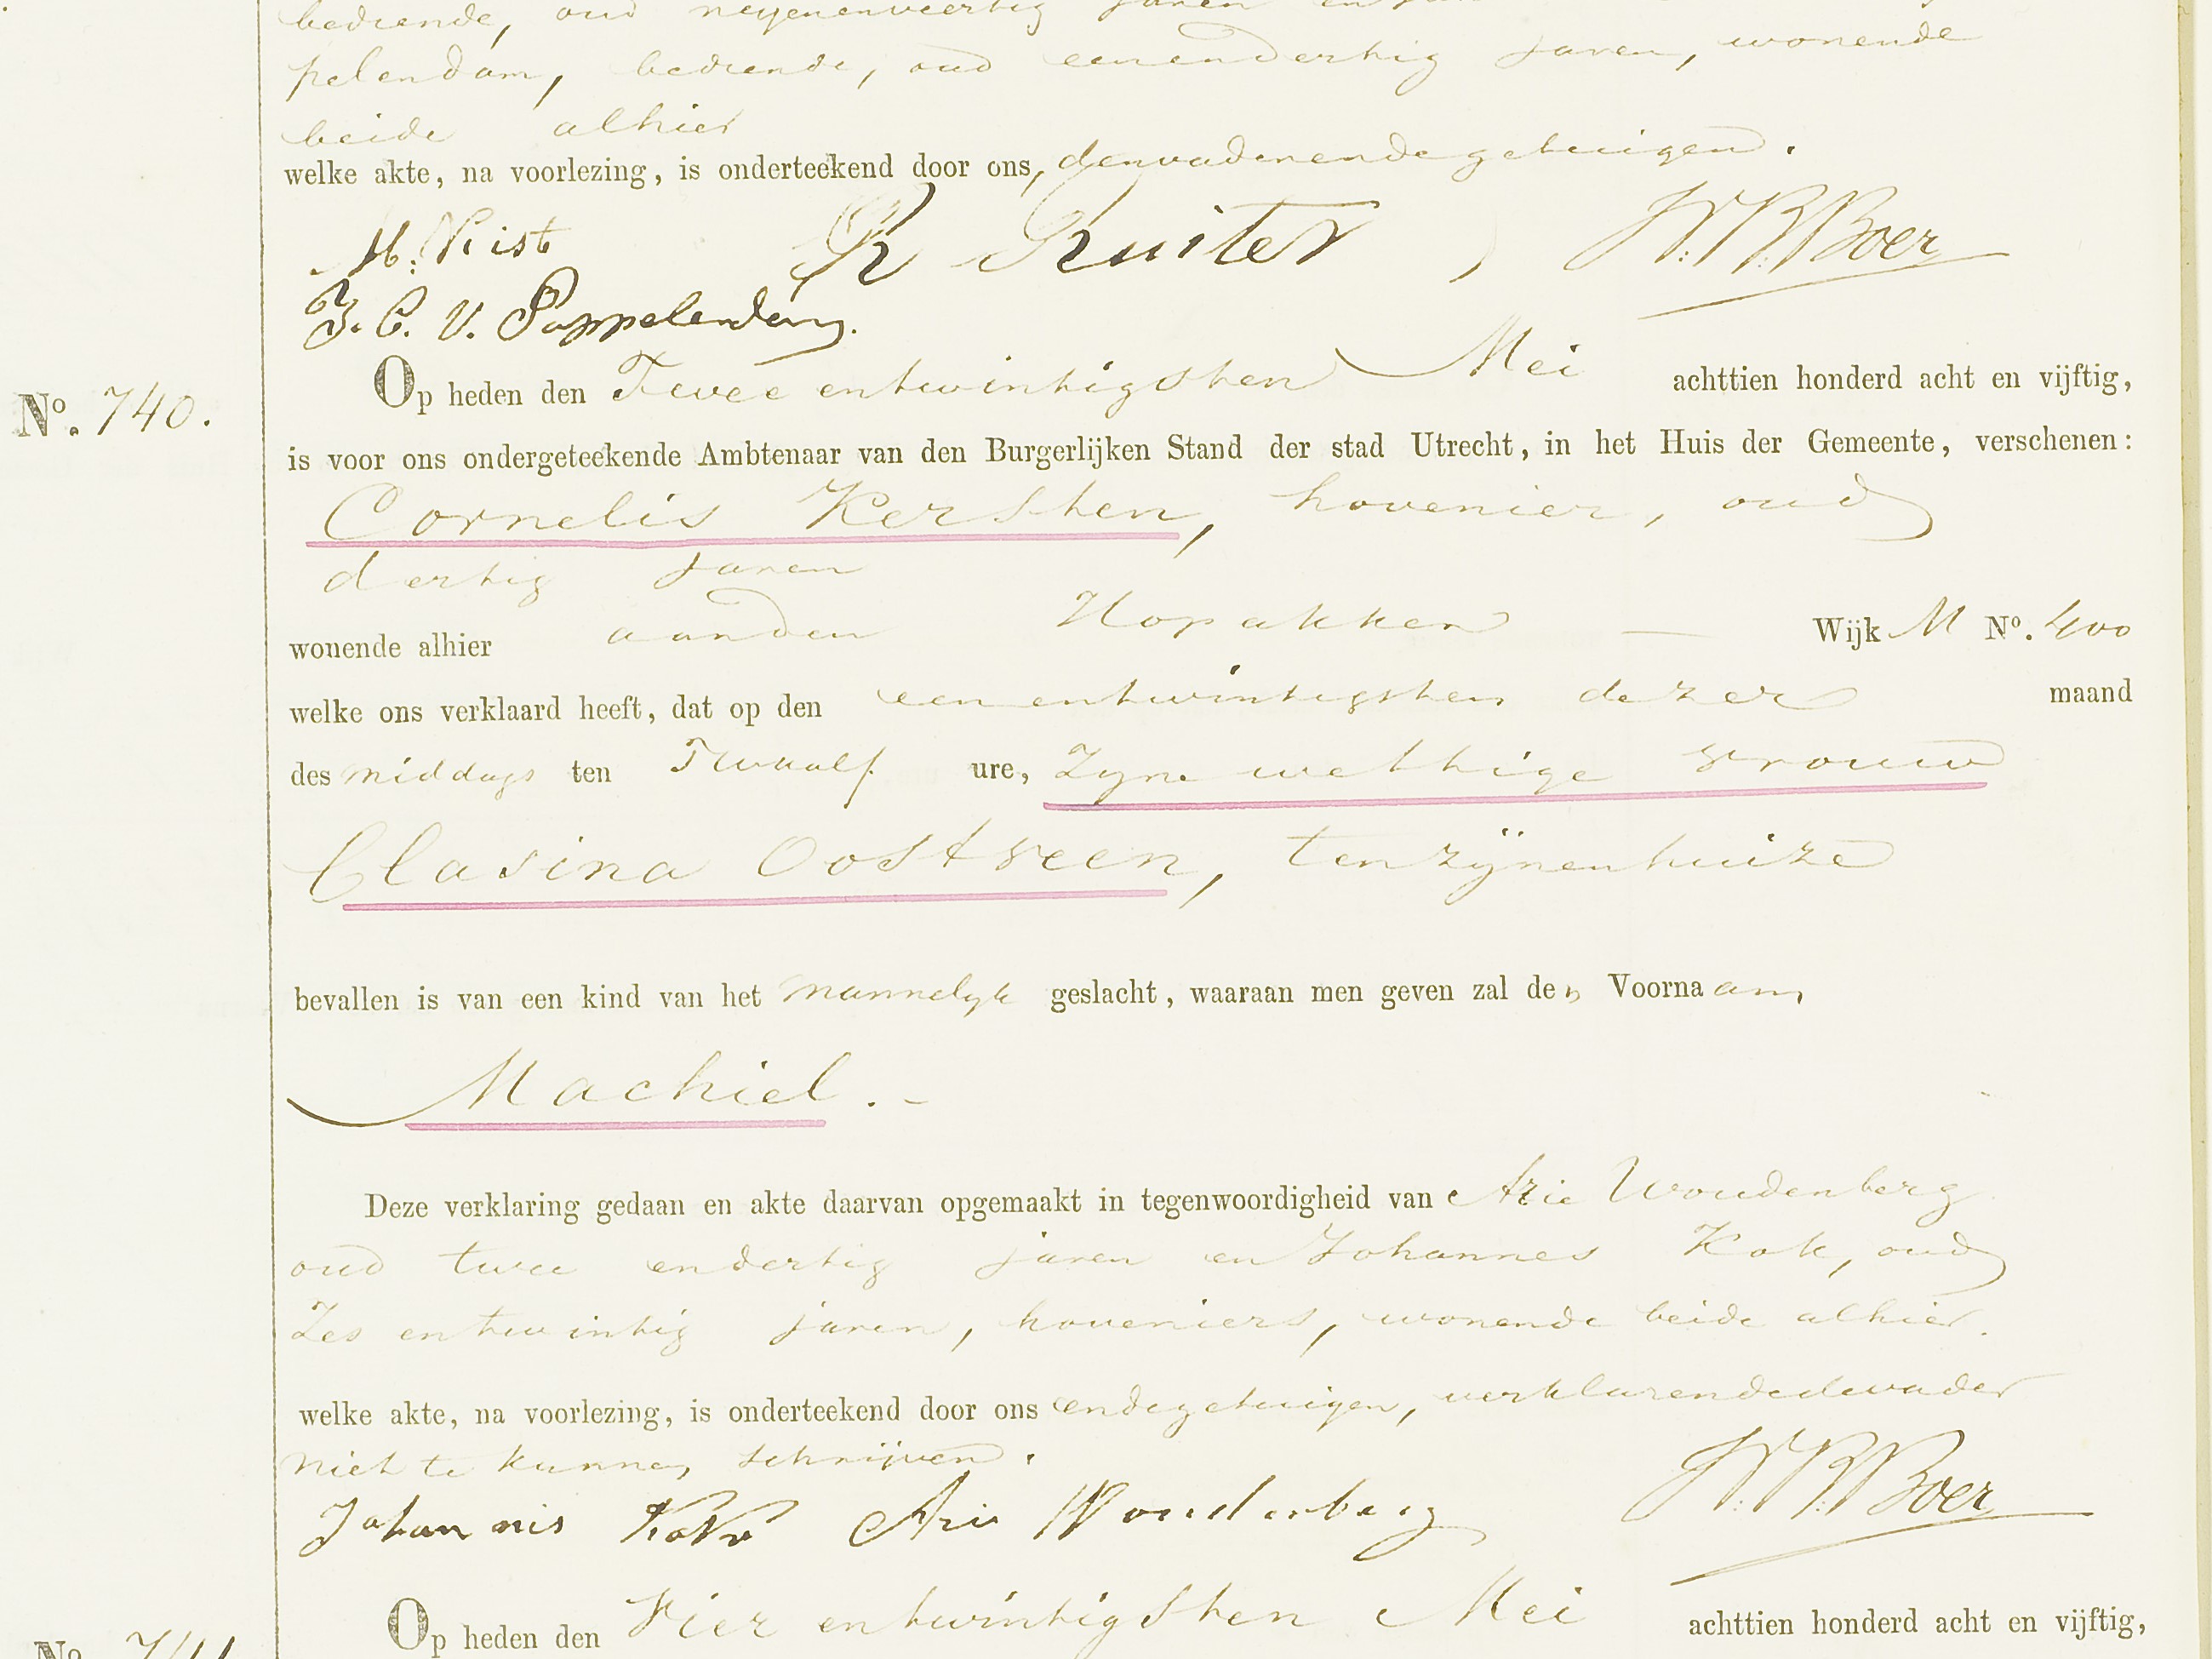 bediende, oud negenenveertig jaren en
pelendam, bediende, oud eenendertig jaren, wonende
beide alhier
welke akte, na voorlezing, is onderteekend door ons, denvaderendegetuigen.
R Ruiter W: B: Boer
J. C. V. Pappelendam.
No. 740.
Op heden den Twee entwintigsten Mei achttien honderd acht en vijftig,
is voor ons ondergeteekende Ambtenaar van den Burgerlijken Stand der stad Utrecht, in het Huis der Gemeente, verschenen:
Cornelis Kersten, hovenier, oud
dertig jaren
wonende alhier aanden Hopakken — Wijk M No. 400
welke ons verklaard heeft, dat op den eenentwintigsten dezer maand
des middags ten Twaalf ure, Zyne wettige vrouw
Clasina Oostveen, tenzijnenhuize
bevallen is van een kind van het mannelyk geslacht, waaraan men geven zal den Voornaam
Machiel. -
Deze verklaring gedaan en akte daarvan opgemaakt in tegenwoordigheid van Arie Woudenberg
oud twee endertig jaren en Johannes Kok, oud
Zes entwintig jaren, hoveniers, wonende beide alhier.
welke akte, na voorlezing, is onderteekend door ons endegetuigen, verklarendedevader
niet te kunnen schrijven.
Johannis Kok Arie Woudenberg W: B: Boer
No. 741
Op heden den Vier entwintigsten Mei achttien honderd acht en vijftig,